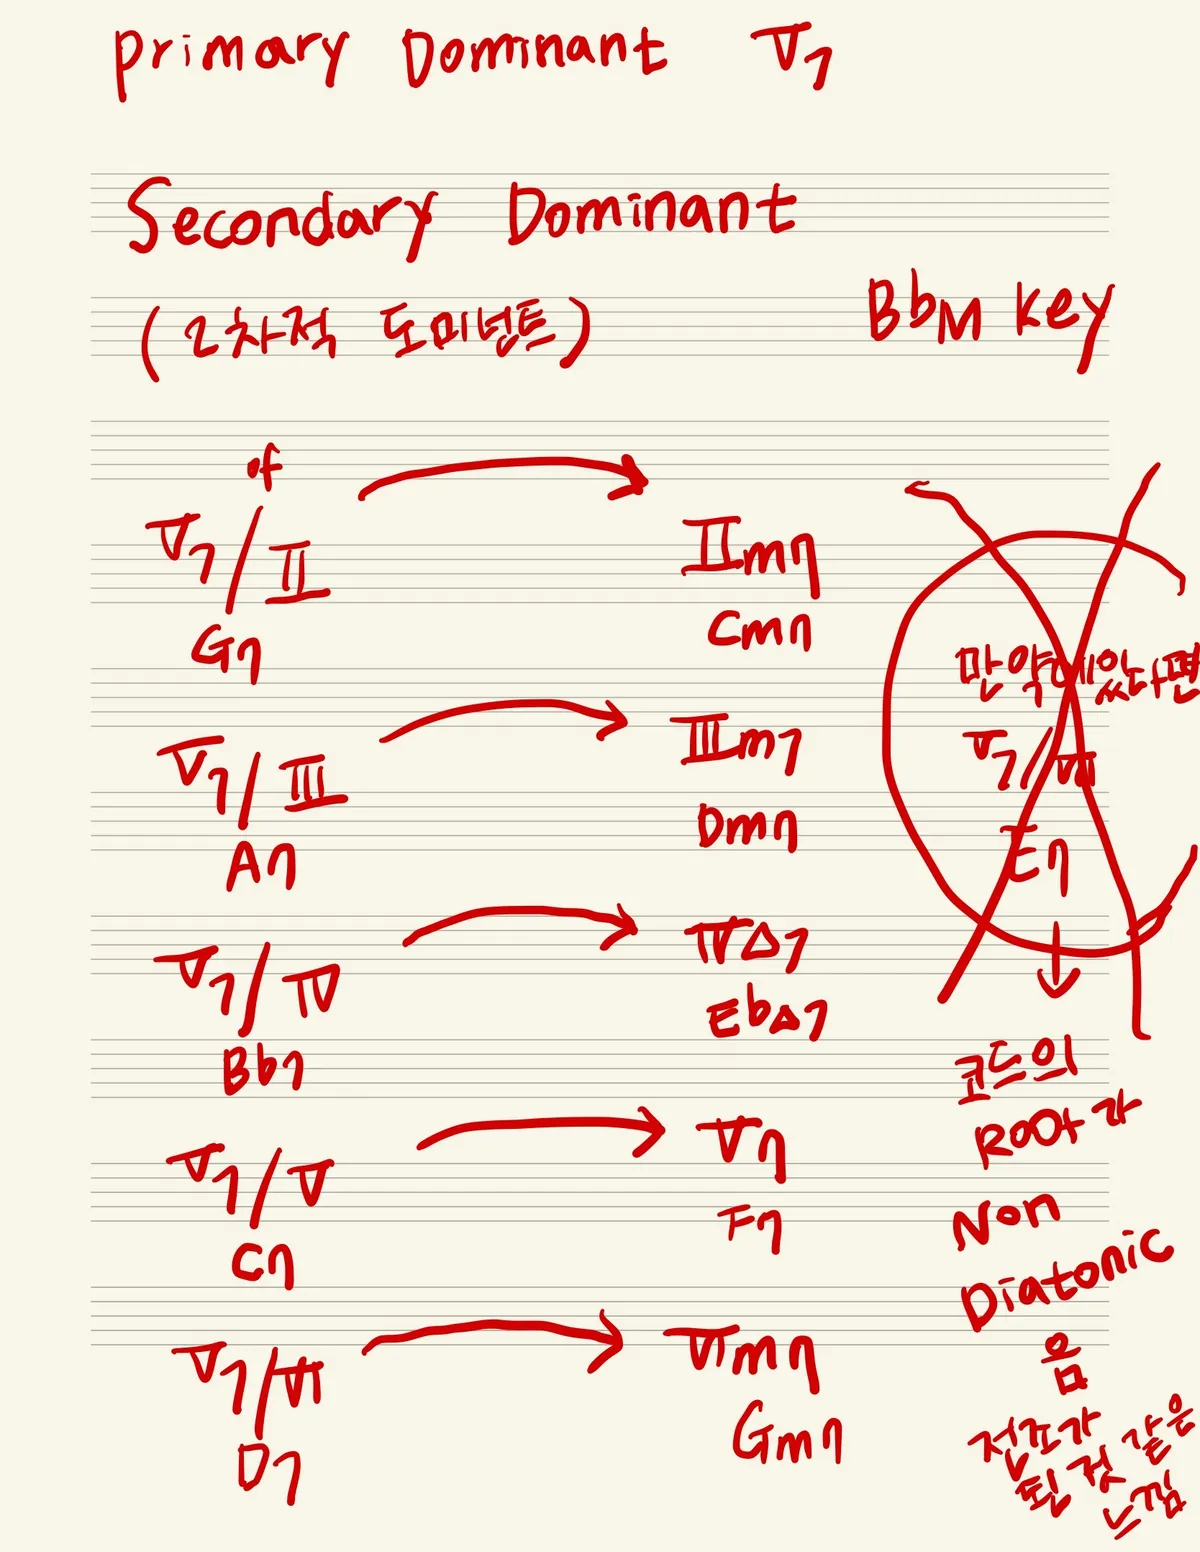 Primary Dominant V7
Secondary Dominant
(2차적 도미넌트)
BbM Key
of
V7/II
IIm7
G7
Cm7
V7/III
IIIm7
A7
Dm7
V7/IV
IV△7
Bb7
Eb△7
V7/V
V7
C7
F7
V7/VI
VIm7
D7
Gm7
만약에있다면
V7/VII
E7
코드의
Root가
Non
Diatonic
음
전조가
된 것 같은
느낌